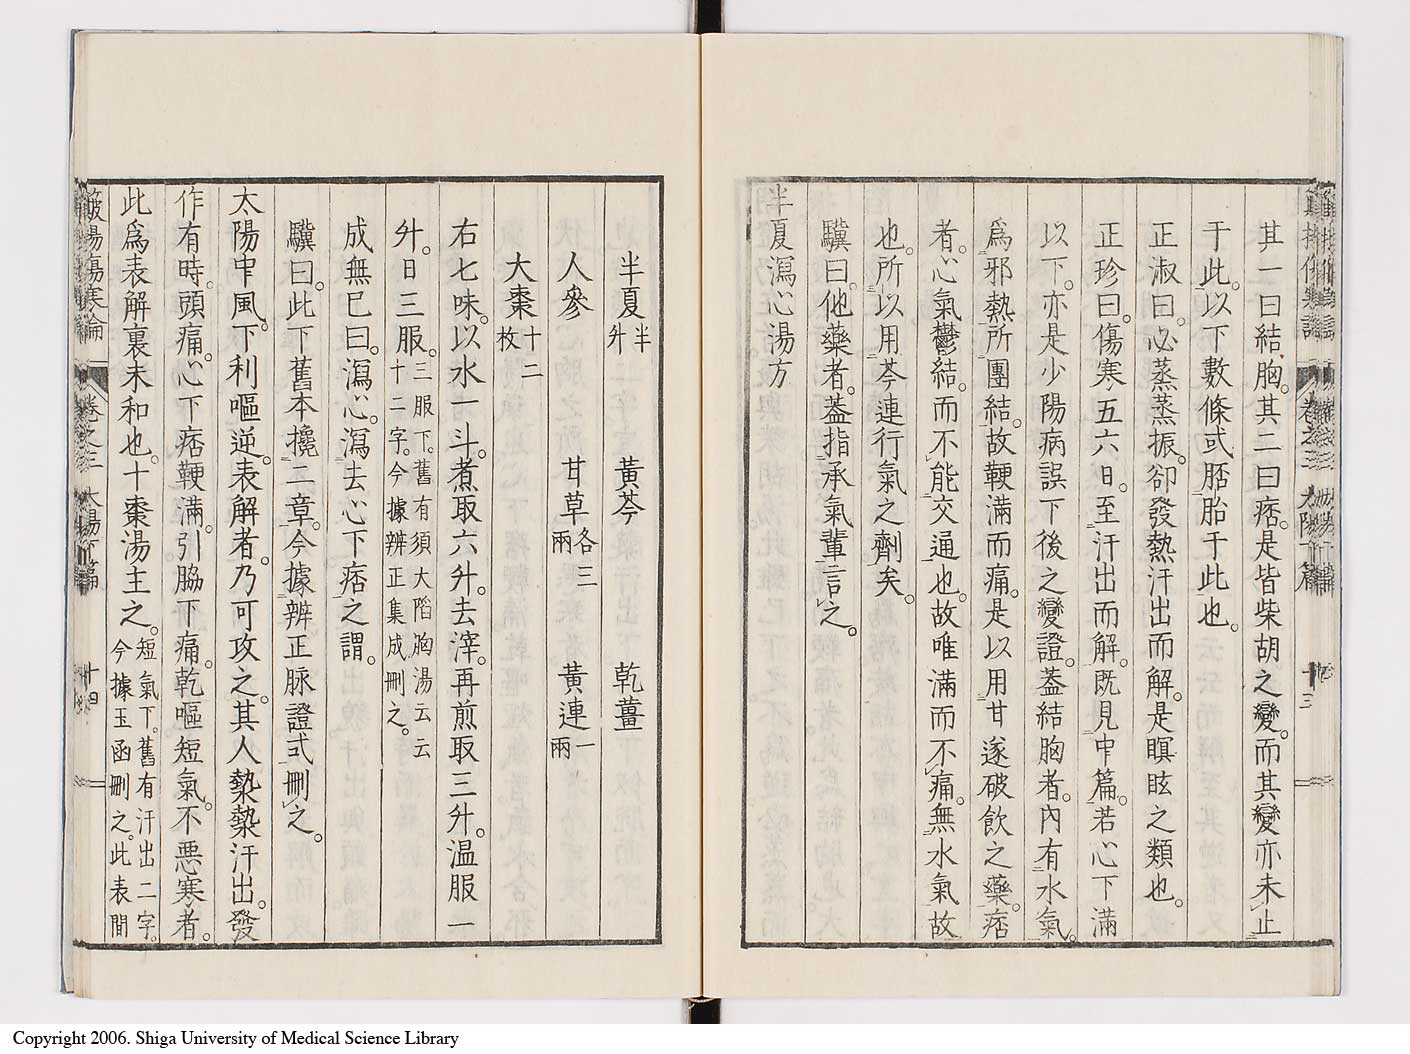 其一曰結胸。其二曰痞。是皆柴胡之變。而其變亦未止
于此。以下數條或胚胎于此也。
正淑曰。必蒸蒸振。卻發熱汗出而解。是瞑眩之類也。
正珍曰。傷寒五六日。至汗出而解。既見中篇。若心下滿
以下。亦是少陽病誤下後之變證。蓋結胸者。內有水氣。
爲邪熱所團結。故鞕滿而痛。是以用甘遂破飲之藥。痞
者。心氣鬱結。而不能交通也。故唯滿而不痛。無水氣故
也。所以用芩連行氣之劑矣。
驥曰。他藥者。蓋指承氣輩言之。
半夏瀉心湯方
卷之三 太陽下篇 十三
半夏半升 黃芩 乾薑
人參 甘草各三兩 黃連一兩
大棗十二枚
右七味。以水一斗。煮取六升。去滓。再煎取三升。温服一
升。日三服。三服下。舊有須大陷胸湯云云十二字。今據辨正集成刪之。
成無已曰。瀉心。瀉去心下痞之謂。
驥曰。此下舊本攙二章。今據辨正脉證式刪之。
太陽中風。下利嘔逆。表解者。乃可攻之。其人漐漐汗出。發
作有時。頭痛。心下痞鞕滿。引脇下痛。乾嘔短氣。不惡寒者。
此爲表解裏未和也。十棗湯主之。短氣下。舊有汗出二字。今據玉函刪之。此表間
傷寒論 卷之三 太陽下篇 十四
Copyright 2006. Shiga University of Medical Science Library